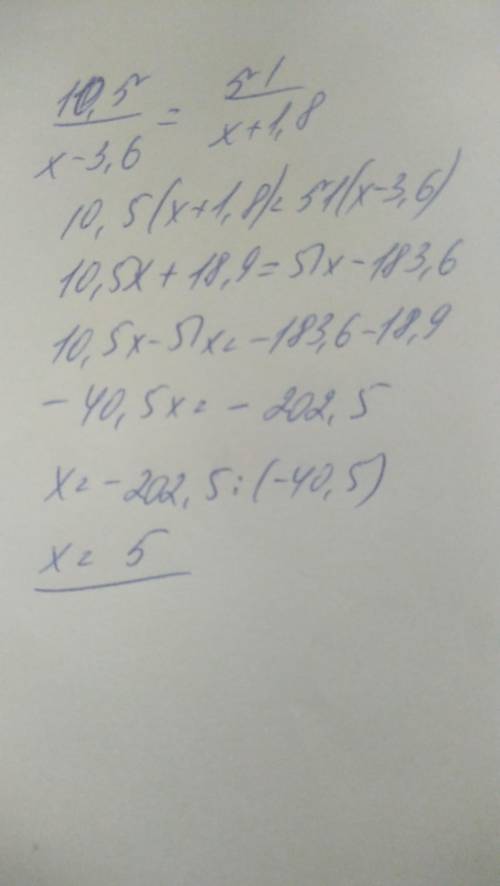 10,5/x-3,6 = 51/x+1,8
10,5(x+1,8)=51(x-3,6)
10,5x+18,9=51x-183,6
10,5x-51x=-183,6-18,9
-40,5x=-202,5
x=-202,5:(-40,5)
x=5